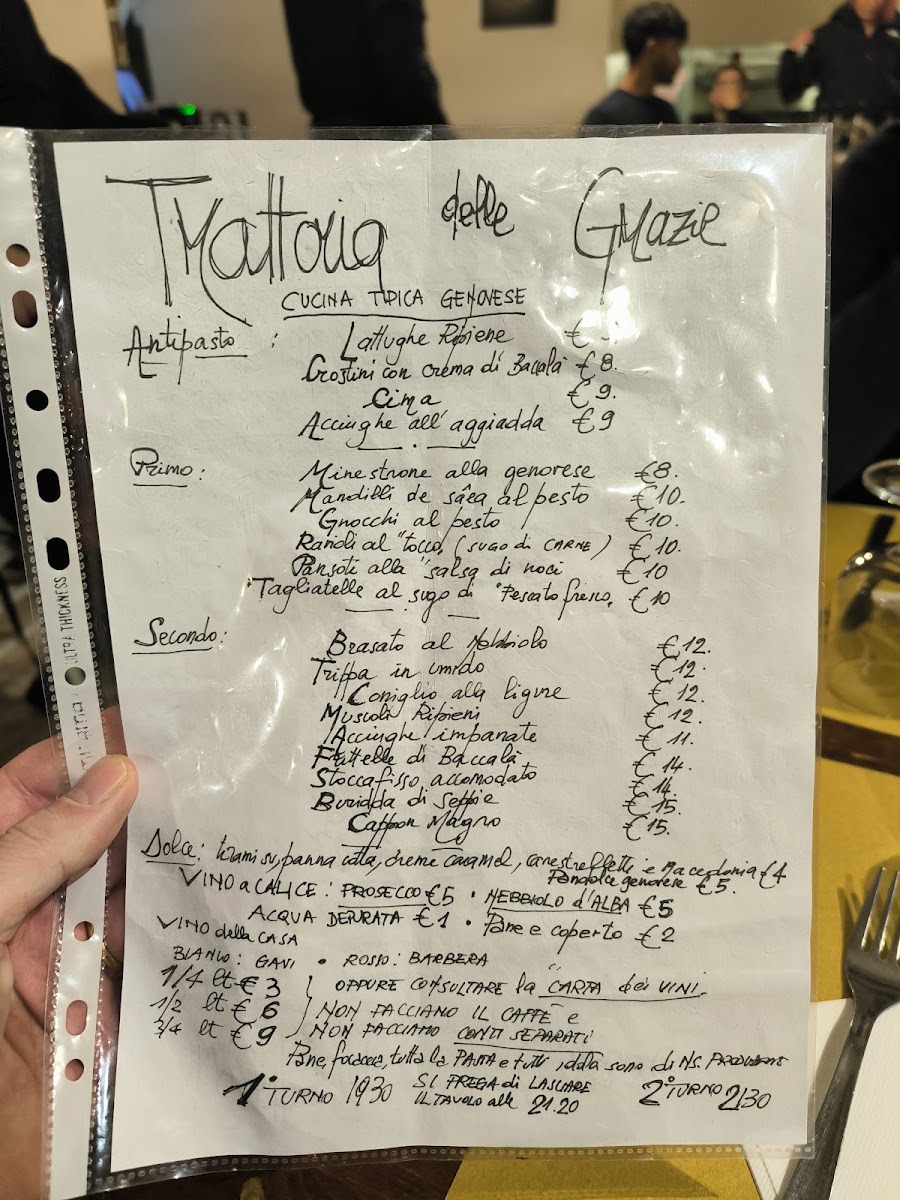 Trattoria delle Grazie
CUCINA TIPICA GENOVESE
Antipasto : Lattughe Ripiene €
Crostini con crema di Baccalà €8.
Cima €9.
Acciughe all'aggiadda €9
Primo : Minestrone alla genovese €8.
Mandilli de sâea al pesto €10.
Gnocchi al pesto €10.
Ravioli al "tocco" (SUGO di CARNE) €10.
Pansoti alla "salsa di noci €10
Tagliatelle al sugo di "Pescato fresco" €10
Secondo : Brasato al Nebbiolo €12.
Trippa in umido €12.
Coniglio alla ligure €12.
Muscoli Ripieni €12.
Acciughe impanate €11.
Frittelle di Baccalà €14.
Stoccafisso accomodato €14.
Buridda di seppie €15.
Cappon Magro €15.
Dolce : tirami su, panna cotta, creme caramel, canestrelletti e Macedonia €4
Pandolce genovese €5.
VINO a CALICE : PROSECCO €5 • NEBBIOLO d'ALBA €5
ACQUA DEPURATA €1 • Pane e coperto €2
VINO della CASA
BIANCO : GAVI • ROSSO : BARBERA
1/4 lt €3 OPPURE CONSULTARE la CARTA dei VINI.
1/2 lt €6 NON FACCIAMO IL CAFFÈ e
3/4 lt €9 NON FACCIAMO CONTI SEPARATI
Pane, focaccia, tutta la PASTA e tutti i dolci sono di NS. PRODUZIONE
1° TURNO 1930 SI PREGA di LASCIARE 2° TURNO 2130
IL TAVOLO alle 21.20
ULTRA THICKNESS